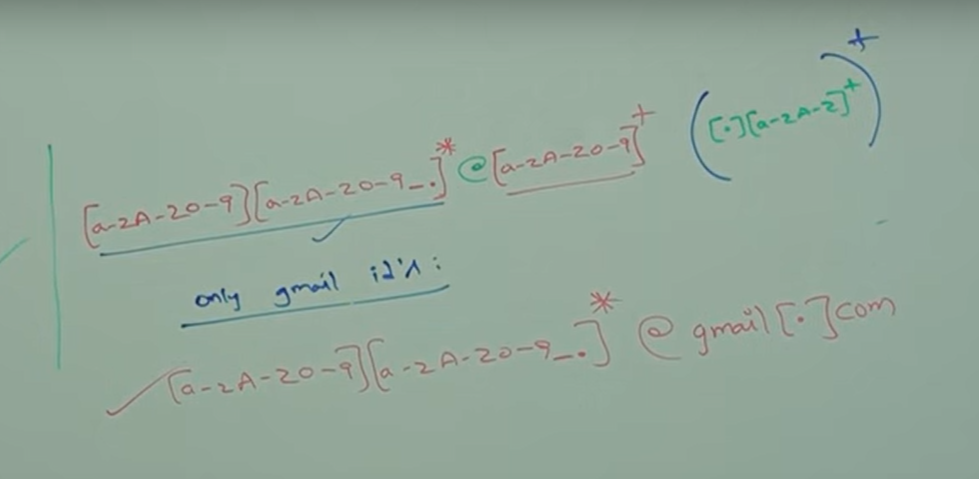 [a-zA-Z0-9][a-zA-Z0-9_.]*@[a-zA-Z0-9]+([.][a-zA-Z]+)+
only gmail id's:
[a-zA-Z0-9][a-zA-Z0-9_.]*@gmail[.]com